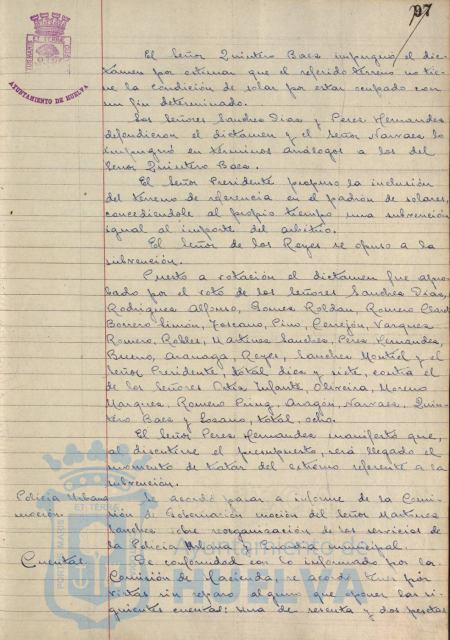 97
AYUNTAMIENTO DE HUELVA
El Señor Quintero Baez impugnó el dic-
tamen por estimar que el referido terreno no tie-
ne la condición de solar por estar ocupado con
un fin determinado.
Los Señores Sanchez Diaz y Perez Hernandez
defendieron el dictamen y el Señor Narvaez lo
impugnó en terminos análogos a los del
Señor Quintero Baez.
El Señor Presidente propuso la inclusión
del terreno de referencia en el padrón de solares,
concediendole al propio tiempo una subvención
igual al importe del arbitrio.
El Señor de los Reyes se opuso a la
subvención.
Puesto a votación el dictamen fue apro-
bado por el voto de los Señores Sanchez Diaz,
Rodriguez Alfonso, Gomez Roldan, Romero
Borrero Limón, Toscano, Pino, Cerrejón, Vazquez
Romero, Robles, Martinez Sanchez, Perez Hernandez,
Bueno, Reyes, Sanchez Montiel y el
Señor Presidente, total diez y siete, contra el
de los Señores Infante, Oliveira, Moreno
Marquez, Romero Aragón, Narvaez, Quin-
tero Baez y Lozano, total, ocho.
El Señor Perez Hernandez manifestó que,
al discutirse el presupuesto, será llegado el
momento de tratar del extremo referente a la
subvención.
Policia Urbana
moción.
Se acordó pasar a informe de la Comi-
sión de Gobernación moción del Señor Martinez
Sanchez sobre reorganización de los servicios de
la Policia Urbana y Guardia Municipal.
Cuentas.
De conformidad con lo informado por la
Comisión de Hacienda, se acordó tener por
vistas sin reparo alguno que oponer las si-
guientes cuentas: una de sesenta y dos pesetas
Ayuntamiento de
HUELVA